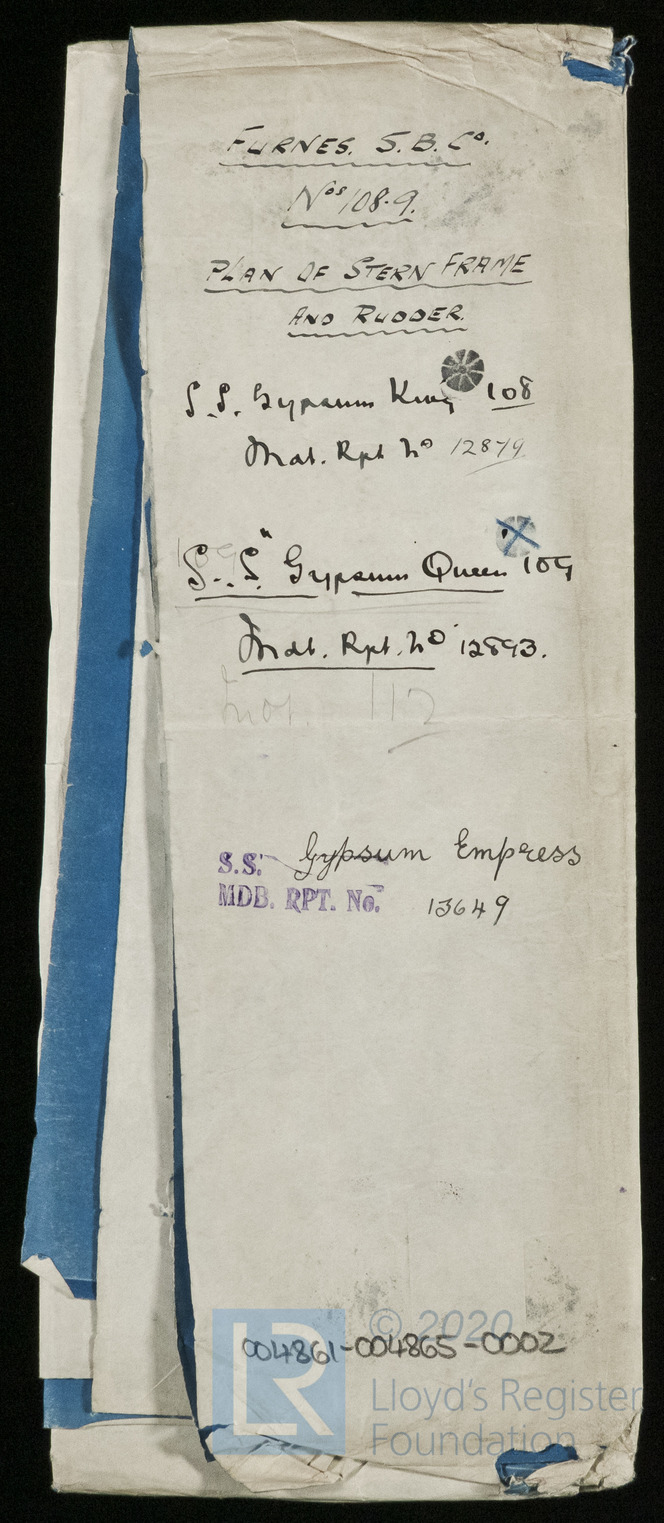 FURNES. S.B. Co.
Nos 108-9.
PLAN OF STERN FRAME
AND RUDDER.
S.S. Gypsum King 108
Mdb. Rpt No 12879
109
S.S. "Gypsum Queen 109
Mdb. Rpt. No 12893.
112
S.S. Gypsum Empress
MDB. RPT. No. 13649
© 2020
004861-004865-0002
LR
Lloyd's Register
Foundation